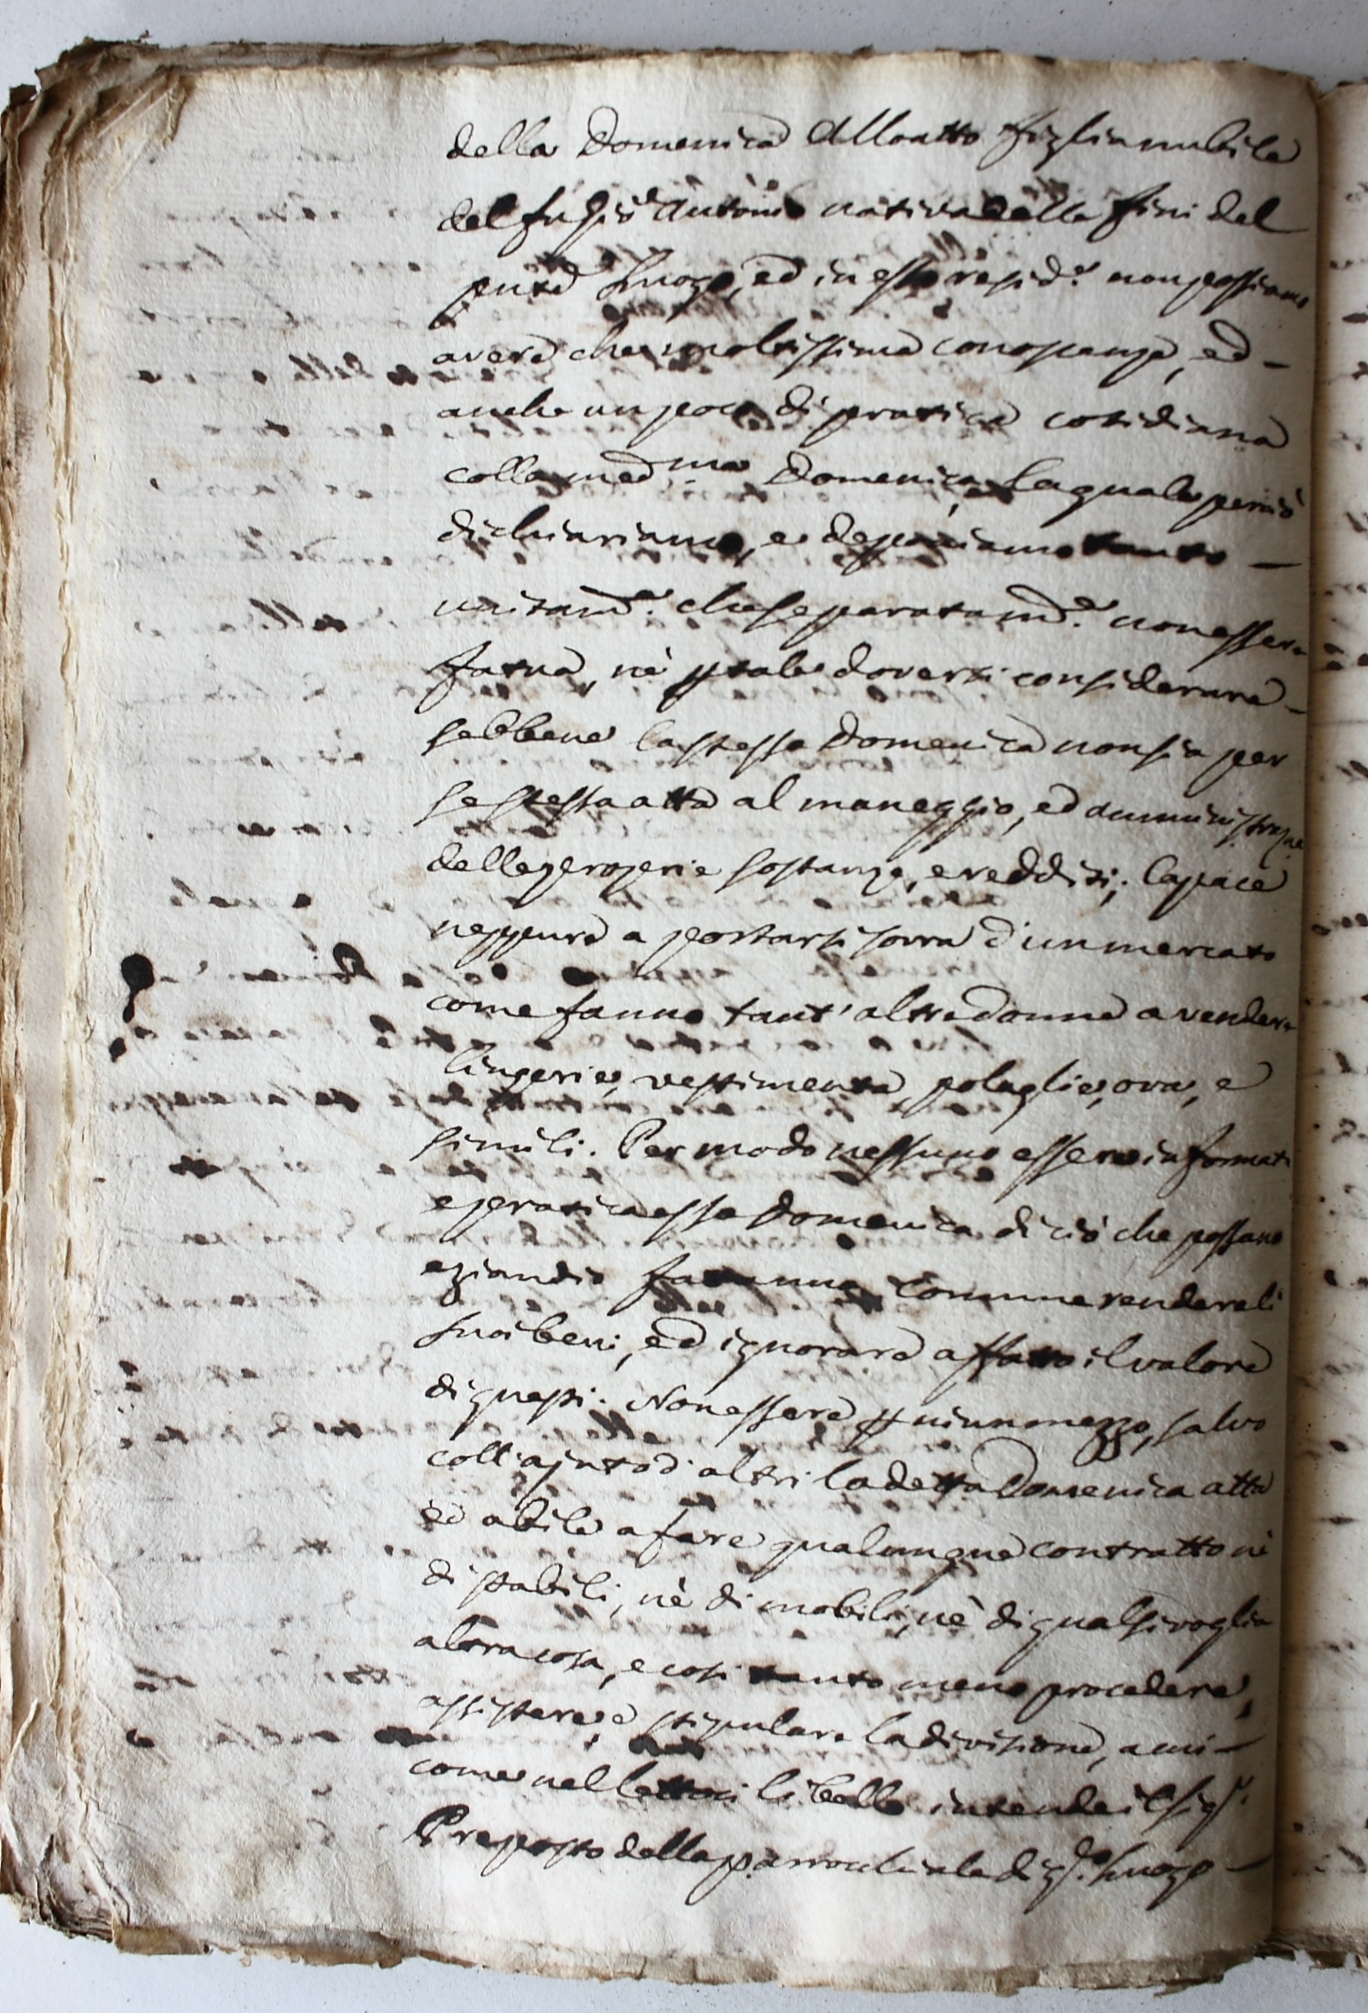 della Domenica Alloatto figlia nubile
del fu Gio Antonio nativa della fini del
pntẽ Luogo, ed in esso resid.e non possiamo
avere che moltissima conoscenza, ed -
anche un poco di pratica cotidiana
colla med.ma Domenica, La quale perciò
dichiariamo, e deponiamo tanto -
unitam.e che separatam.e non essere
fatua, nè p tale doversi considerare -
sebbene la stessa Domenica non sia per
se stessa atta al maneggio, ed amministraz.ne
delle proprie sostanze, e redditi; Capace
neppure a portarsi sovra d'un mercato
come fanno tant' altre donne a vendere
lingerie, vestimenta, polaglie, ova, e
simili. Per modo nessuno essere informata
e pratica essa Domenica di ciò che possano
eziandio comune rendere li
suoi beni, ed ignorare affatto il valore
di questi. Non essere p niun mezzo, salvo
coll'ajuto d'altri la detta Domenica atta
ed abile a fare qualunque contratto nè
di stabili, nè di mobili, nè di qualsivoglia
altra cosa, e così tanto meno procedere,
assistere, e stipulare la divisione, a cui -
come nel lettoci libello intende il sig.r
Preposto della parrochiale di q.to Luogo -